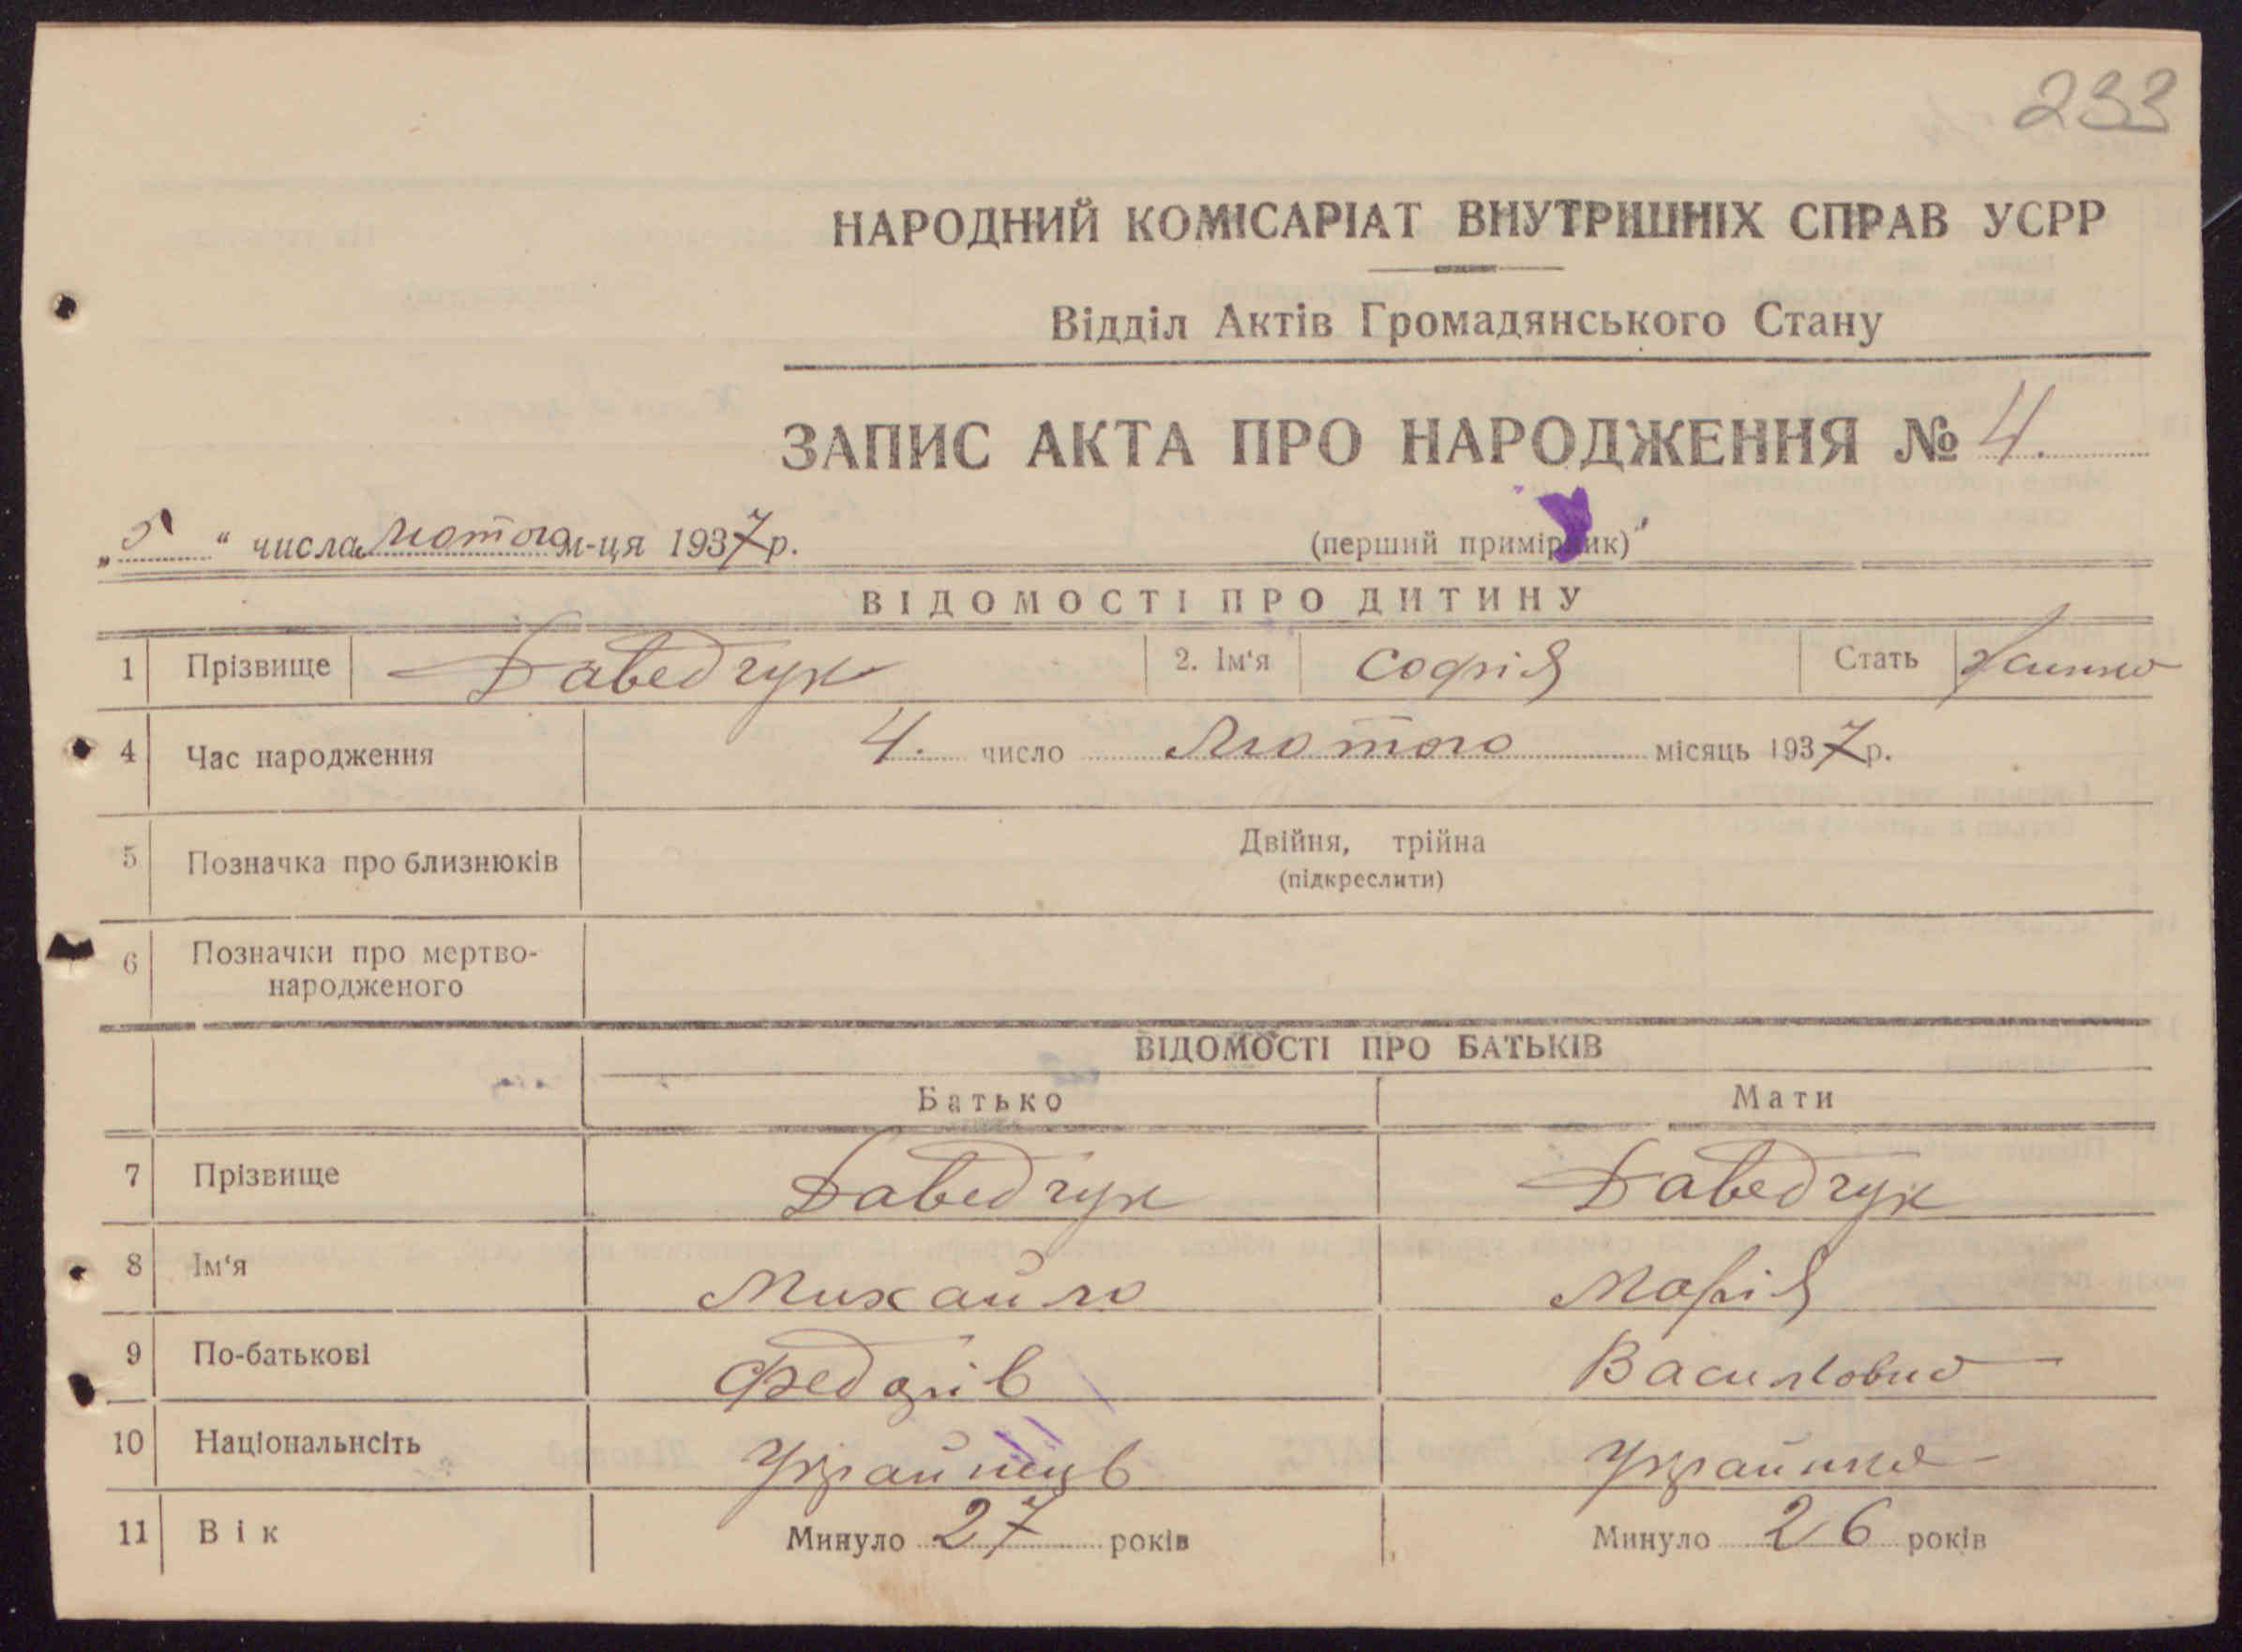 233
НАРОДНИЙ КОМІСАРІАТ ВНУТРІШНІХ СПРАВ УСРР
Відділ Актів Громадянського Стану
ЗАПИС АКТА ПРО НАРОДЖЕННЯ № 4.
„5“ числа Лютого м-ця 1937 р. (перший примірник)
ВІДОМОСТІ ПРО ДИТИНУ
1 Прізвище Даведчук 2. Ім'я Софія Стать
4 Час народження 4. число Лютого місяць 1937 р.
5 Позначка про близнюків Двійня, трійна
(підкреслити)
6 Позначки про мертво-
народженого
ВІДОМОСТІ ПРО БАТЬКІВ
Батько Мати
7 Прізвище Даведчук Даведчук
8 Ім'я Михайло Марія
9 По-батькові Федорів Василовна
10 Національнсіть Українець Українка
11 Вік Минуло 27 років Минуло 26 років